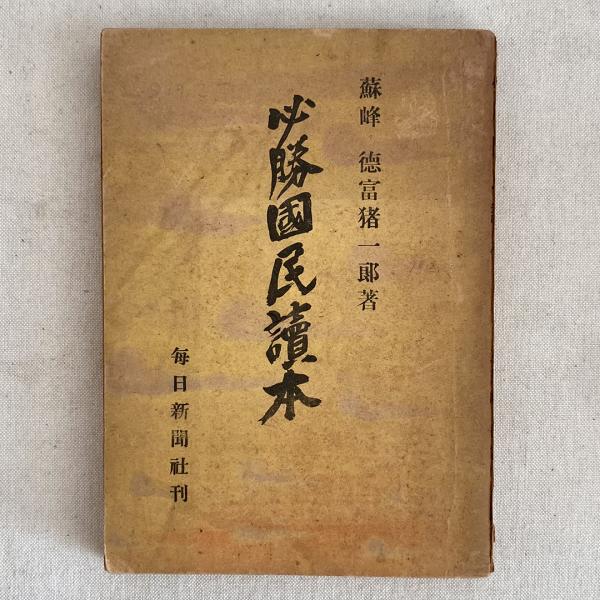 蘇峰 德富猪一郞著
必勝國民讀本
每日新聞社刊